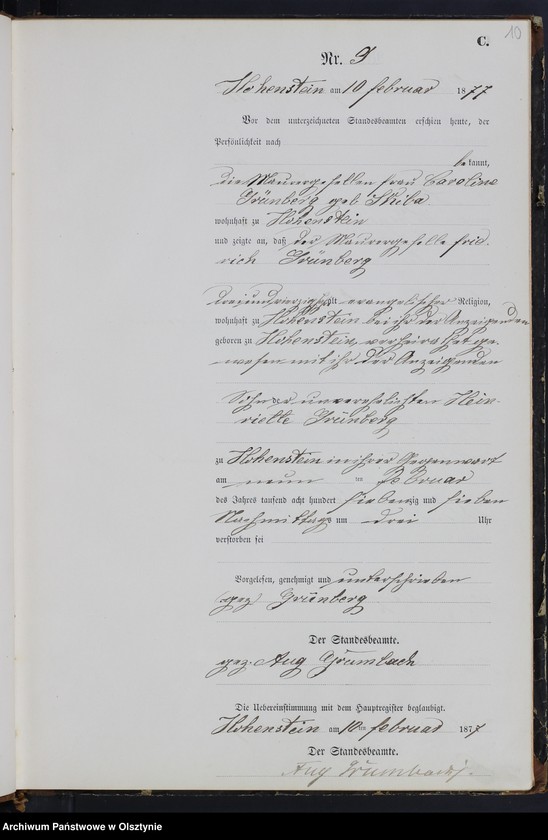 10
C.
Nr. 9
Hohenstein am 10 februar 1877
Vor dem unterzeichneten Standesbeamten erschien heute, der
Persönlichkeit nach
bekannt,
die Maurergesellen frau Caroline
Grünberg geb Skiba
wohnhaft zu Hohenstein
und zeigte an, daß der Maurergeselle frie-
rich Grünberg
alt evangelischer Religion,
wohnhaft zu Hohenstein bei ihr der Anzeigenden
geboren zu Hohenstein, verheirathet ge-
wesen mit ihr der Anzeigenden
Sohn der unverehelichten Hein-
riette Grünberg
zu Hohenstein in ihrer Gegenwart
am neun ten Februar
des Jahres tausend acht hundert siebenzig und sieben
Nachmittags um drei Uhr
verstorben sei
Vorgelesen, genehmigt und unterschrieben
gez. Grünberg
Der Standesbeamte.
gez. Aug Grumbach
Die Uebereinstimmung mit dem Hauptregister beglaubigt.
Hohenstein am 10ten februar 1877
Der Standesbeamte.
Aug Grumbach
Archiwum Państwowe w Olsztynie